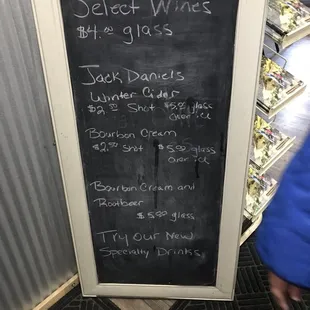 Select Wines
$4.00 glass
Jack Daniels
Winter Cider
$2.00 Shot $5.00 glass
over ice
Bourbon Cream
$2.00 Shot $5.00 glass
over ice
Bourbon Cream and
Rootbeer
$5.00 glass
Try our New
Specialty Drinks